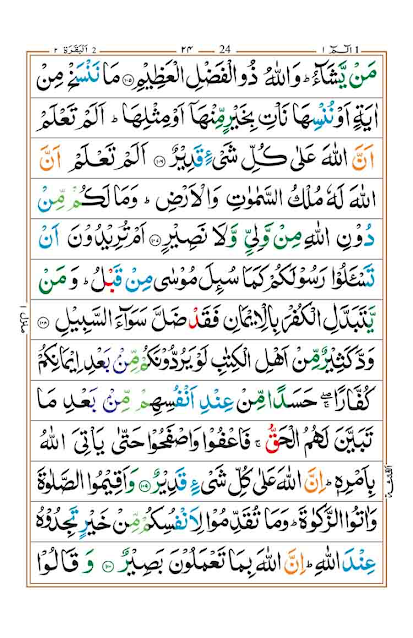 الٓمّٓ ١ 24 ٢٤ البقرة ٢
مَنْ يَّشَآءُ ؕ وَاللّٰهُ ذُو الْفَضْلِ الْعَظِيْمِ ﴿۱۰۵﴾ مَا نَنْسَخْ مِنْ
اٰيَةٍ اَوْ نُنْسِهَا نَاْتِ بِخَيْرٍ مِّنْهَاۤ اَوْ مِثْلِهَا ؕ اَلَمْ تَعْلَمْ
اَنَّ اللّٰهَ عَلٰى كُلِّ شَیْءٍ قَدِيْرٌ ﴿۱۰۶﴾ اَلَمْ تَعْلَمْ اَنَّ
اللّٰهَ لَهٗ مُلْكُ السَّمٰوٰتِ وَالْاَرْضِ ؕ وَمَا لَكُمْ مِّنْ
دُوْنِ اللّٰهِ مِنْ وَّلِیٍّ وَّلَا نَصِيْرٍ ﴿۱۰۷﴾ اَمْ تُرِيْدُوْنَ اَنْ
تَسْـَٔلُوْا رَسُوْلَكُمْ كَمَا سُىِٕلَ مُوْسٰى مِنْ قَبْلُ ؕ وَمَنْ
يَّتَبَدَّلِ الْكُفْرَ بِالْاِيْمَانِ فَقَدْ ضَلَّ سَوَآءَ السَّبِيْلِ ﴿۱۰۸﴾
وَدَّ كَثِيْرٌ مِّنْ اَهْلِ الْكِتٰبِ لَوْ يَرُدُّوْنَكُمْ مِّنْۢ بَعْدِ اِيْمَانِكُمْ
كُفَّارًا ۖۚ حَسَدًا مِّنْ عِنْدِ اَنْفُسِهِمْ مِّنْۢ بَعْدِ مَا
تَبَيَّنَ لَهُمُ الْحَقُّ ۚ فَاعْفُوْا وَاصْفَحُوْا حَتّٰى يَاْتِیَ اللّٰهُ
بِاَمْرِهٖ ؕ اِنَّ اللّٰهَ عَلٰى كُلِّ شَیْءٍ قَدِيْرٌ ﴿۱۰۹﴾ وَاَقِيْمُوا الصَّلٰوةَ
وَاٰتُوا الزَّكٰوةَ ؕ وَمَا تُقَدِّمُوْا لِاَنْفُسِكُمْ مِّنْ خَيْرٍ تَجِدُوْهُ
عِنْدَ اللّٰهِ ؕ اِنَّ اللّٰهَ بِمَا تَعْمَلُوْنَ بَصِيْرٌ ﴿۱۱۰﴾ وَقَالُوْا